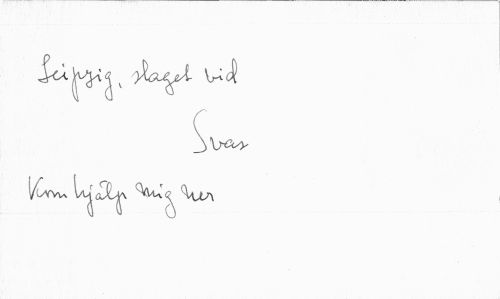 Leipzig, slaget vid
Svar
Kom hjälp mig ner